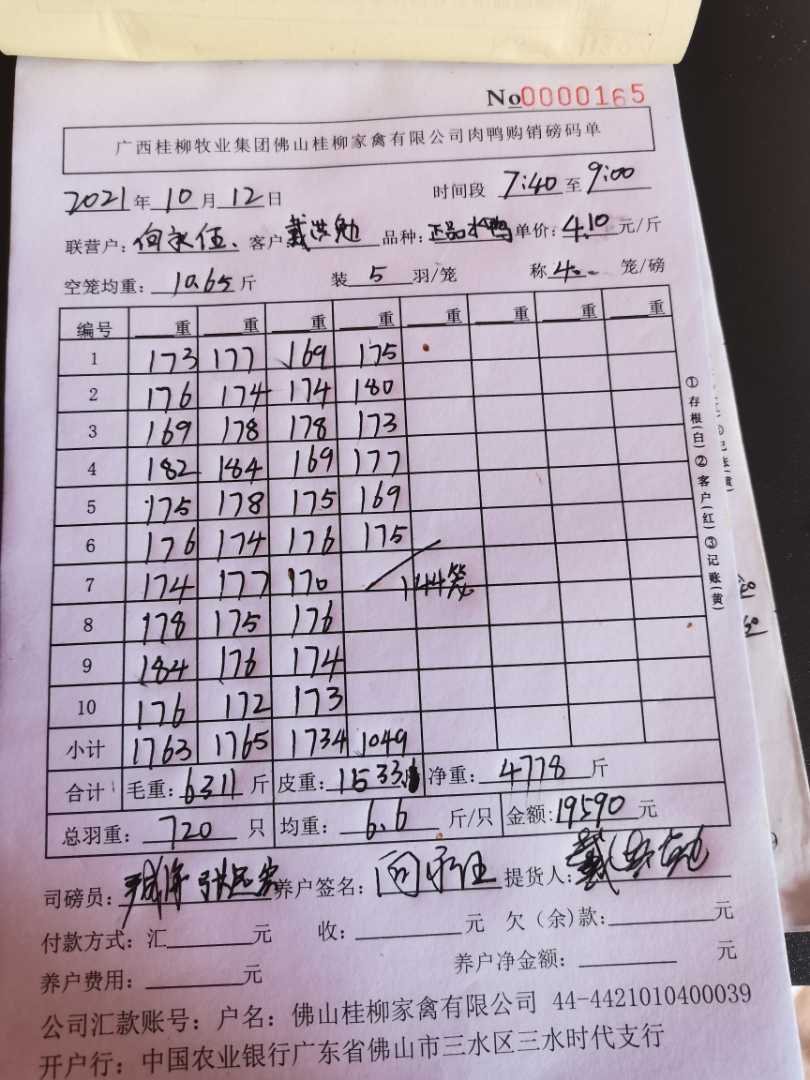 No 0000165
广西桂柳牧业集团佛山桂柳家禽有限公司肉鸭购销磅码单
2021年10月12日 时间段 7:40至9:00
联营户: 向永伍 客户 戴洪勉 品种: 正品水鸭 单价: 4.10元/斤
空笼均重: 10.65斤 装 5 羽/笼 称 4 笼/磅
编号 重 重 重 重 重 重 重 重
1 173 177 169 175
2 176 174 174 180
3 169 178 178 173
4 182 184 169 177
5 175 178 175 169
6 176 174 176 175
7 174 177 170 144笼
8 178 175 176
9 184 176 174
10 176 172 173
小计 1763 1765 1734 1049
合计 毛重: 6311斤 皮重: 1533.6 净重: 4778斤
总羽重: 720只 均重: 6.6斤/只 金额: 19590元
司磅员: 养户签名: 提货人:
付款方式: 汇 元 收: 元 欠(余)款: 元
养户费用: 元 养户净金额: 元
公司汇款账号: 户名: 佛山桂柳家禽有限公司 44-4421010400039
开户行: 中国农业银行广东省佛山市三水区三水时代支行
①存根(白)②客户(红)③记账(黄)